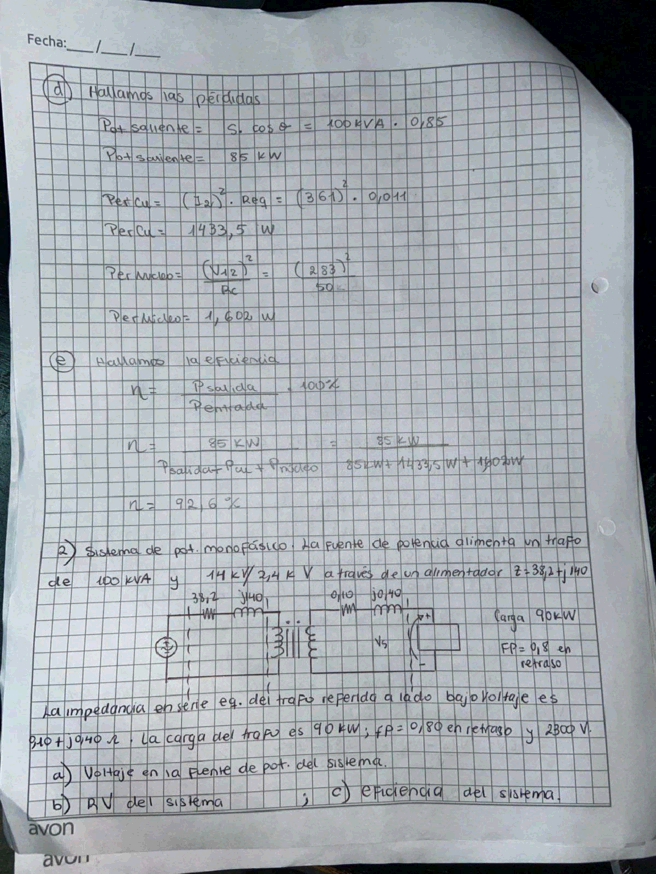 Fecha:___/___/___
d) Hallamos las pérdidas
Pot saliente = S. cos θ = 100 kVA . 0,85
Pot saliente = 85 kW
PerCu = (I2)² . Req = (361)² . 0,011
PerCu = 1433,5 W
Per Nucleo = (V12)² / Rc = (283)² / 50
Per Núcleo = 1,602 W
e) Hallamos la eficiencia
n = Psalida / Pentrada . 100%
n = 85 kW / Psalida + Pcu + Pnucleo = 85 kW / 85kW + 1433,5W + 1,602W
n = 92,6 %
2) Sistema de pot. monofásico. La fuente de potencia alimenta un trafo
de 100 kVA y 14 kV/2,4 kV a través de un alimentador Z = 38,2 + j 140
38,2 j140 0,10 j0,40
Carga 90kW
Vs
+
-
FP = 0,8 en
retraso
La impedancia en serie eq. del trafo referida a lado bajo voltaje es
0,10 + j0,40 Ω. La carga del trafo es 90 kW, fp = 0,80 en retraso y 2300 V.
a) Voltaje en la fuente de pot. del sistema.
b) RV del sistema ; c) eficiencia del sistema.
avon
avon